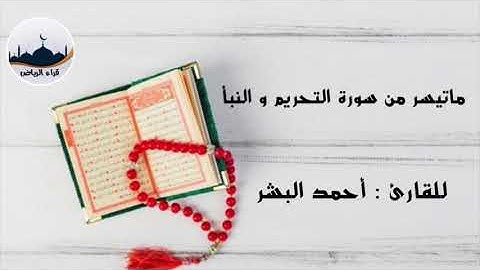 قراء الرياض
ماتيسر من سورة التحريم و النبأ
للقارئ : أحمد البشر